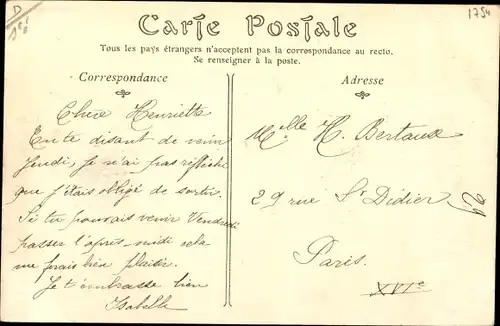 D
1754
Carte Postale
Tous les pays étrangers n'acceptent pas la correspondance au recto.
Se renseigner à la poste.
Correspondance
Chère Henriette
En te disant de venir
Jeudi, je n'ai pas réfléchi
que j'étais obligé de sortir.
Si tu pouvais venir Vendredi
passer l'après-midi cela
me ferais bien plaisir.
Je t'embrasse bien
Isabelle
Adresse
Melle H. Bertaux
29 rue St Didier 29
Paris.
XVIe